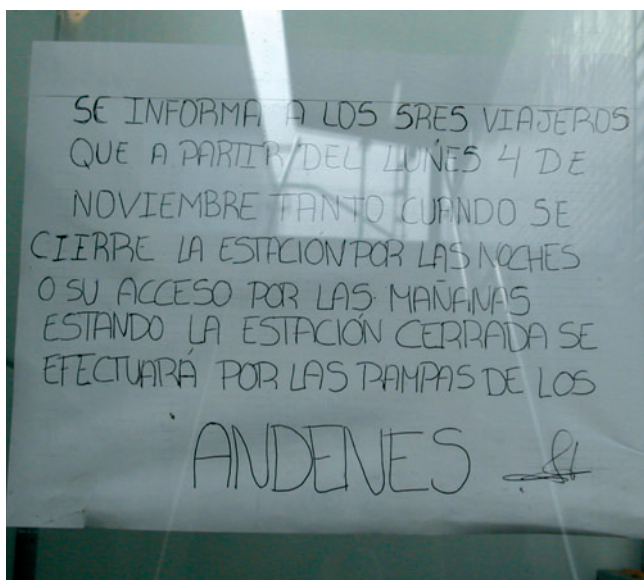 SE INFORMA A LOS SRES VIAJEROS
QUE A PARTIR DEL LUNES 4 DE
NOVIEMBRE TANTO CUANDO SE
CIERRE LA ESTACIÓN POR LAS NOCHES
O SU ACCESO POR LAS MAÑANAS
ESTANDO LA ESTACIÓN CERRADA SE
EFECTUARÁ POR LAS RAMPAS DE LOS
ANDENES